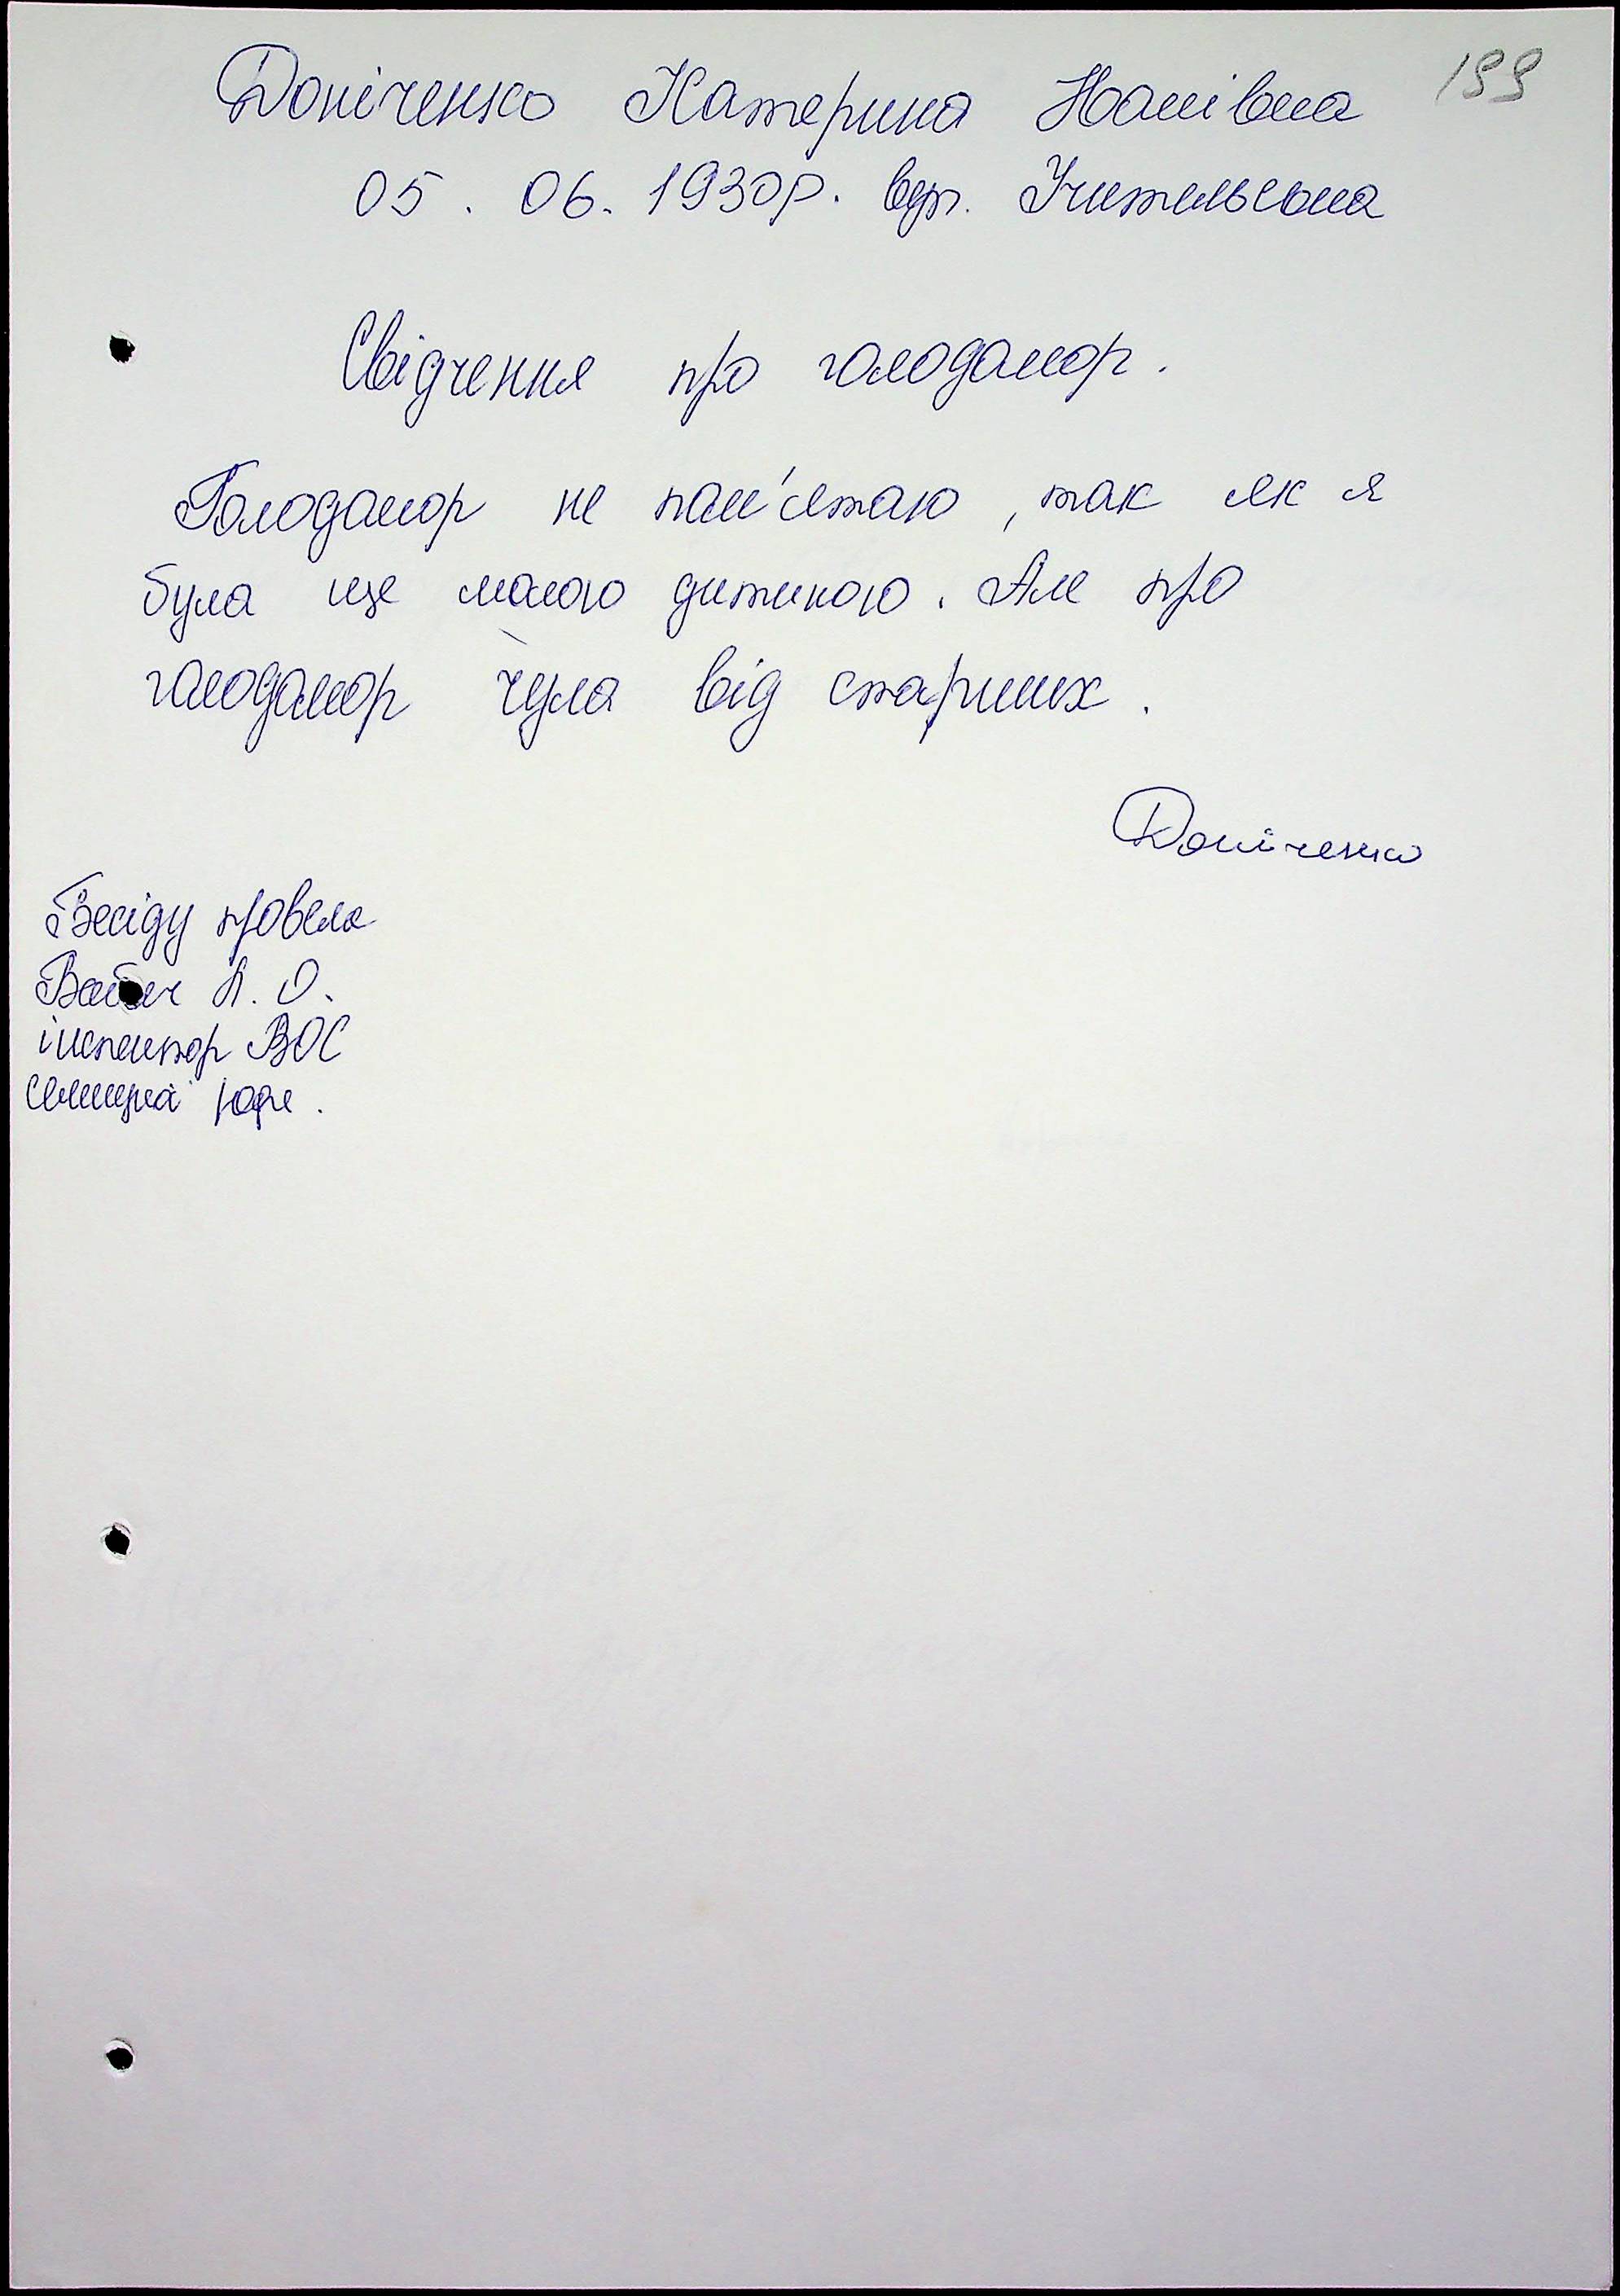 199
Доніченко Катерина
05.06.1930р. вул. Учительська
Свідчення про голодомор.
Голодомор не пам'ятаю, так як я
була ще малою дитиною. Але про
голодомор чула від старших.
Доніченко
Бесіду провела
Бабич Л. О.
інспектор ВОС
селищна рада.